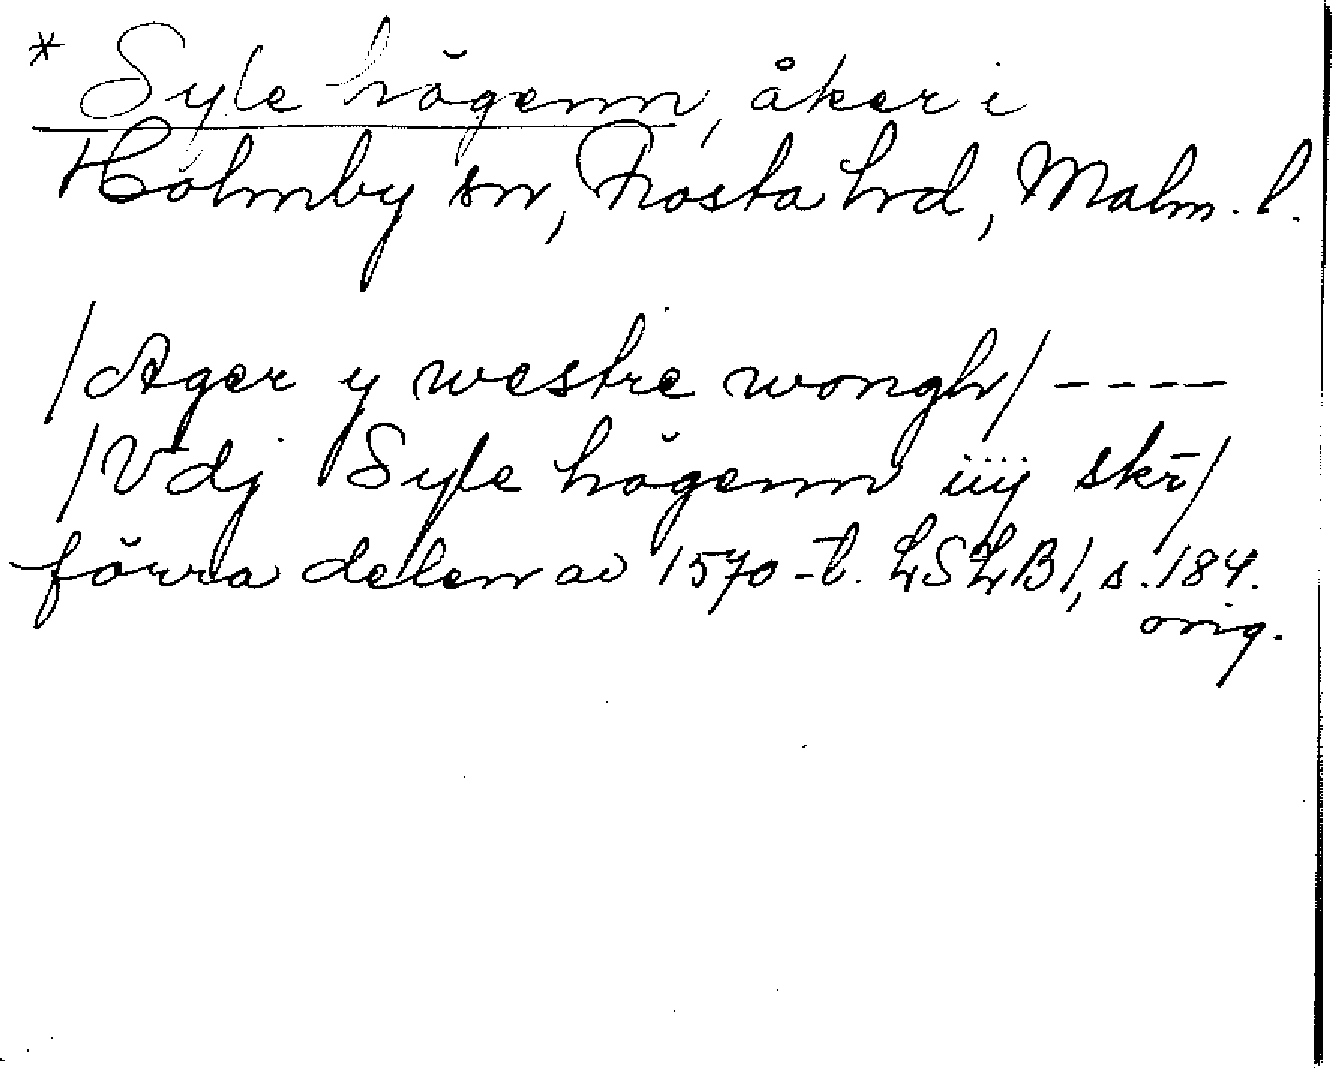 * Syle högenn, åker i
Holmby sn, Frosta hrd, Malm. l.
/Ager y westre wongh/ ----
/Vdj Syle högenn iiij skr/
förra delen av 1570-t. LSLB1, s. 184.
orig.